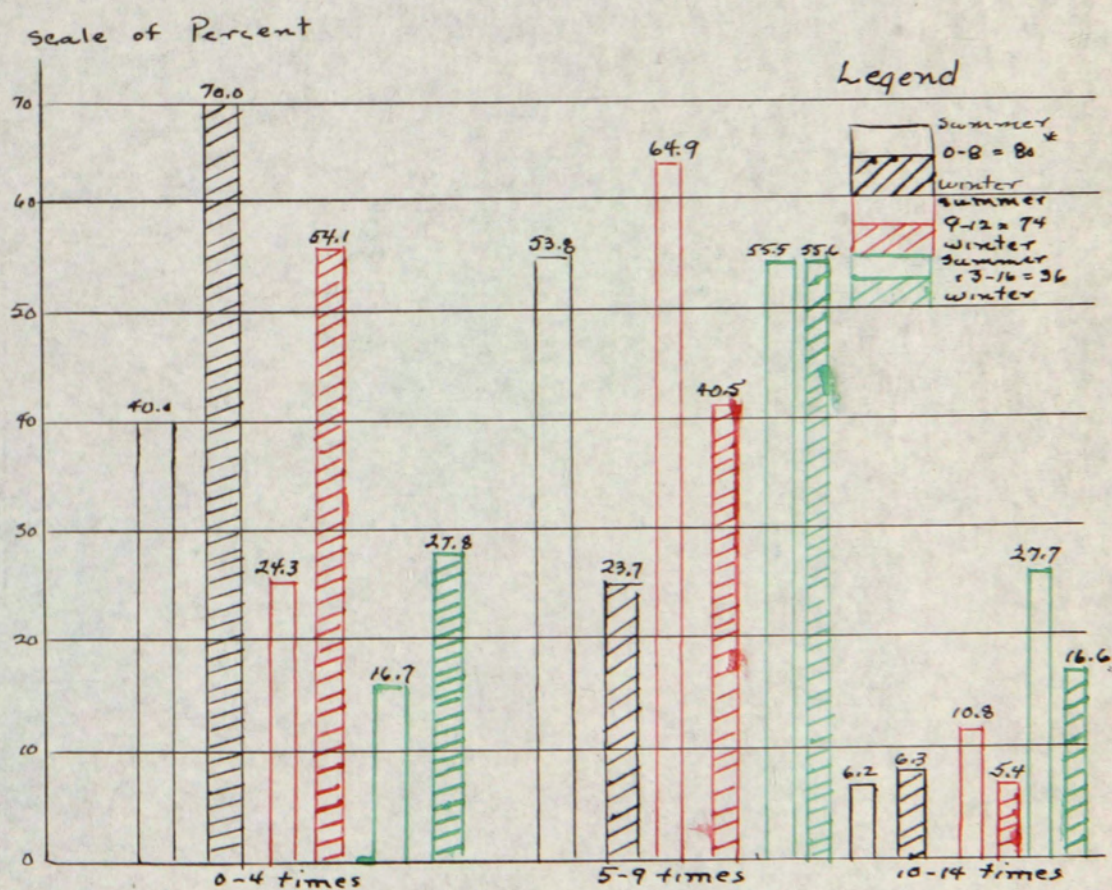 Scale of Percent
Legend
summer
0-8 = 80 *
winter
summer
9-12 = 74
winter
summer
13-16 = 36
winter
70
60
50
40
30
20
10
0
70.0
54.1
24.3
16.7
27.8
53.8
23.7
64.9
40.5
55.5
6.2
6.3
10.8
5.4
27.7
16.6
0-4 times
5-9 times
10-14 times